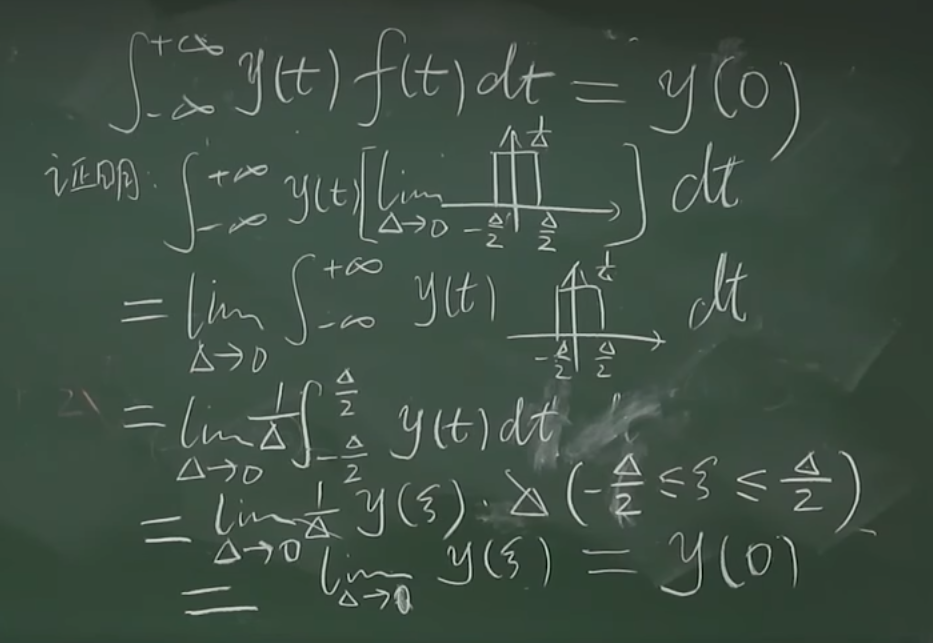 ∫_{-∞}^{+∞} y(t) f(t) dt = y(0)
证明: ∫_{-∞}^{+∞} y(t) [ lim_{Δ→0} 1/Δ -Δ/2 Δ/2 ] dt
= lim_{Δ→0} ∫_{-∞}^{+∞} y(t) 1/Δ -Δ/2 Δ/2 dt
= lim_{Δ→0} 1/Δ ∫_{-Δ/2}^{Δ/2} y(t) dt
= lim_{Δ→0} 1/Δ y(ξ) · Δ (-Δ/2 ≤ ξ ≤ Δ/2)
= lim_{Δ→0} y(ξ) = y(0)